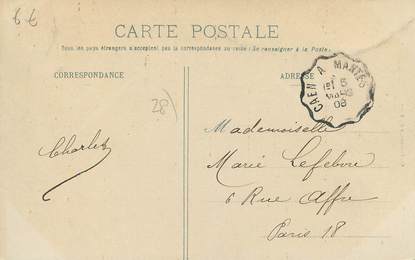 6€
CARTE POSTALE
Tous les pays étrangers n'acceptent pas la correspondance au recto. (Se renseigner à la Poste.
CORRESPONDANCE
ADRESSE
CAEN A MANTES
5
08
28
Charles
Mademoiselle
Marie Lefebvre
6 Rue Affre
Paris 18